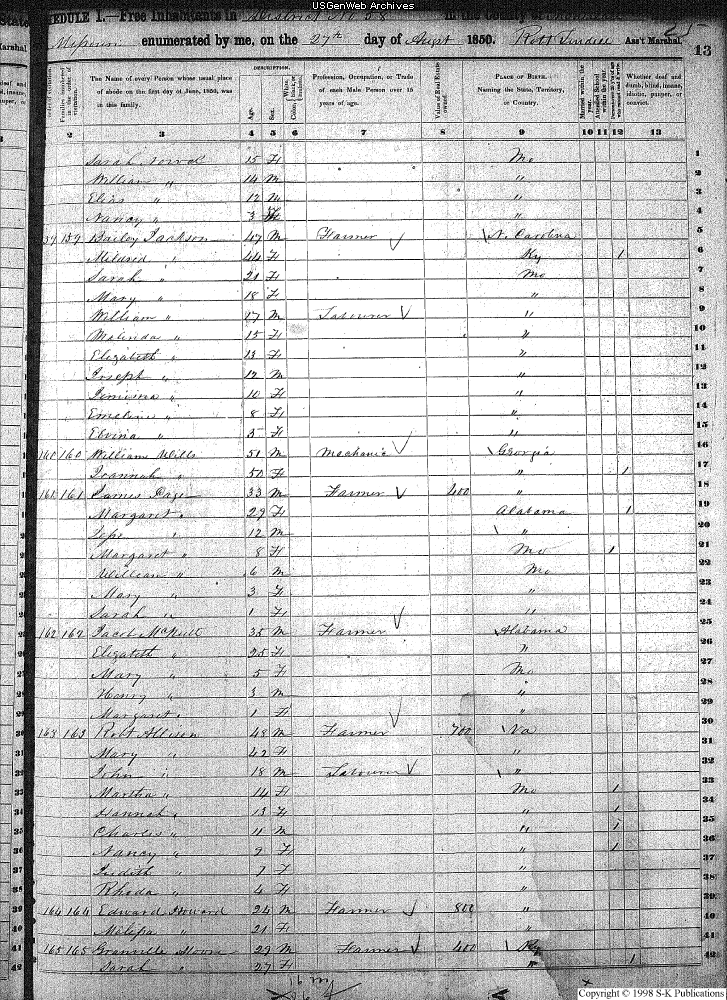 USGenWeb Archives
SCHEDULE I.—Free Inhabitants in District No 38 in the County of
Missouri enumerated by me, on the 27th day of Augst 1850. Robt Ass't Marshal.
13
The Name of every Person whose usual place of abode on the first day of June, 1850, was in this family.
DESCRIPTION.
Age.
Sex.
Profession, Occupation, or Trade of each Male Person over 15 years of age.
Value of Real Estate owned.
PLACE OF BIRTH. Naming the State, Territory, or Country.
Married within the year.
Attended School within the year.
Whether deaf and dumb, blind, insane, idiotic, pauper, or convict.
2 3 4 5 6 7 8 9 10 11 12 13
Sarah 15 F Mo 1
William " 14 M " 2
Elias " 12 M " 3
Nancy " 3 F " 4
159 159 Bailey Jackson 47 M Farmer N. Carolina 5
Mildred " 44 F Ky 1 6
Sarah " 21 F Mo 7
Mary " 18 F " 8
William " 17 M Labourer " 9
Malinda " 15 F " 10
Elizabeth " 13 F " 11
Joseph " 12 M " 12
Jemima " 10 F " 13
Emeline " 8 F " 14
Elvina " 5 F " 15
160 160 William Wills 51 M Mechanic Georgia 16
Joannah " 50 F " 1 17
161 161 James Page 33 M Farmer 400 " 18
Margaret " 29 F Alabama 1 19
" 12 M " 20
Margaret " 8 F Mo 1 21
William " 6 M Mo 22
Mary " 3 F " 23
Sarah " 1 F " 24
162 162 Jacob 35 M Farmer Alabama 25
Elizabeth " 25 F " 26
Mary " 5 F Mo 27
Henry " 3 M " 28
Margaret " 1 F " 29
163 163 Robt Allison 48 M Farmer 700 Va 30
Mary " 42 F " 31
John " 18 M Labourer " 32
Martha " 14 F Mo 1 33
Hannah " 13 F " 1 34
Charles " 11 M " 1 35
Nancy " 9 F " 1 36
Judith " 7 F " 37
Rhoda " 4 F " 38
164 164 Edward Howard 24 M Farmer 800 " 39
" 21 F " 40
165 165 Granville 29 M Farmer 400 Ky 41
Sarah " 27 F " 1 42
Copyright © 1998 S-K Publications